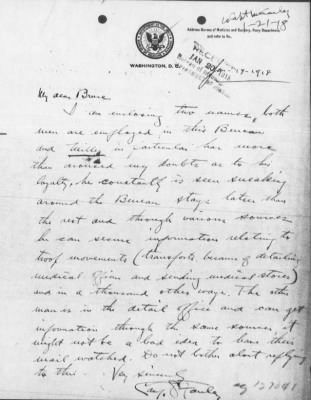 1-21-18
Address Bureau of Medicine and Surgery, Navy Department
and refer to No.
WASHINGTON, D. C.
JAN 20 1918
1-19-1918
My dear Bruce
I am enclosing two names, both
men are employed in this Bureau
and in particular has more
than aroused my doubts as to his
loyalty, he constantly is seen sneaking
around the Bureau stays later than
the rest and through various sources
he can secure information relating to
troop movements (transports because of detailing
medical officers and sending medical stores)
and in a thousand other ways. The other
man is in the detail office and can get
information through the same sources, it
might not be a bad idea to have their
mail watched. Do not bother about replying
to this. Very sincerely